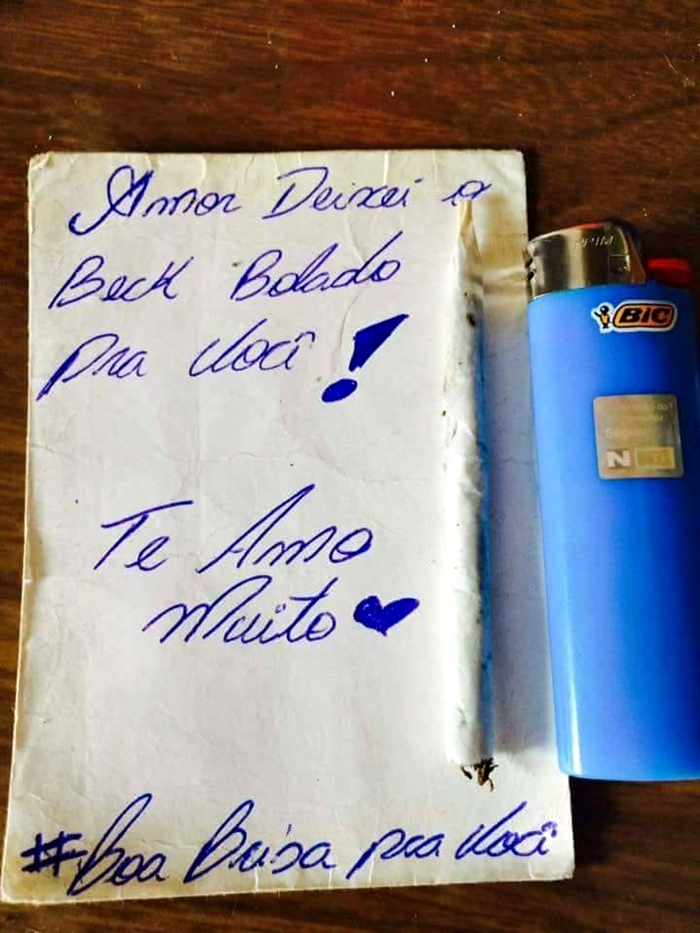 Amor Deixei o
Beck Bolado
pra você!
Te Amo
Muito ♥
#Boa Brisa pra você
BIC
N